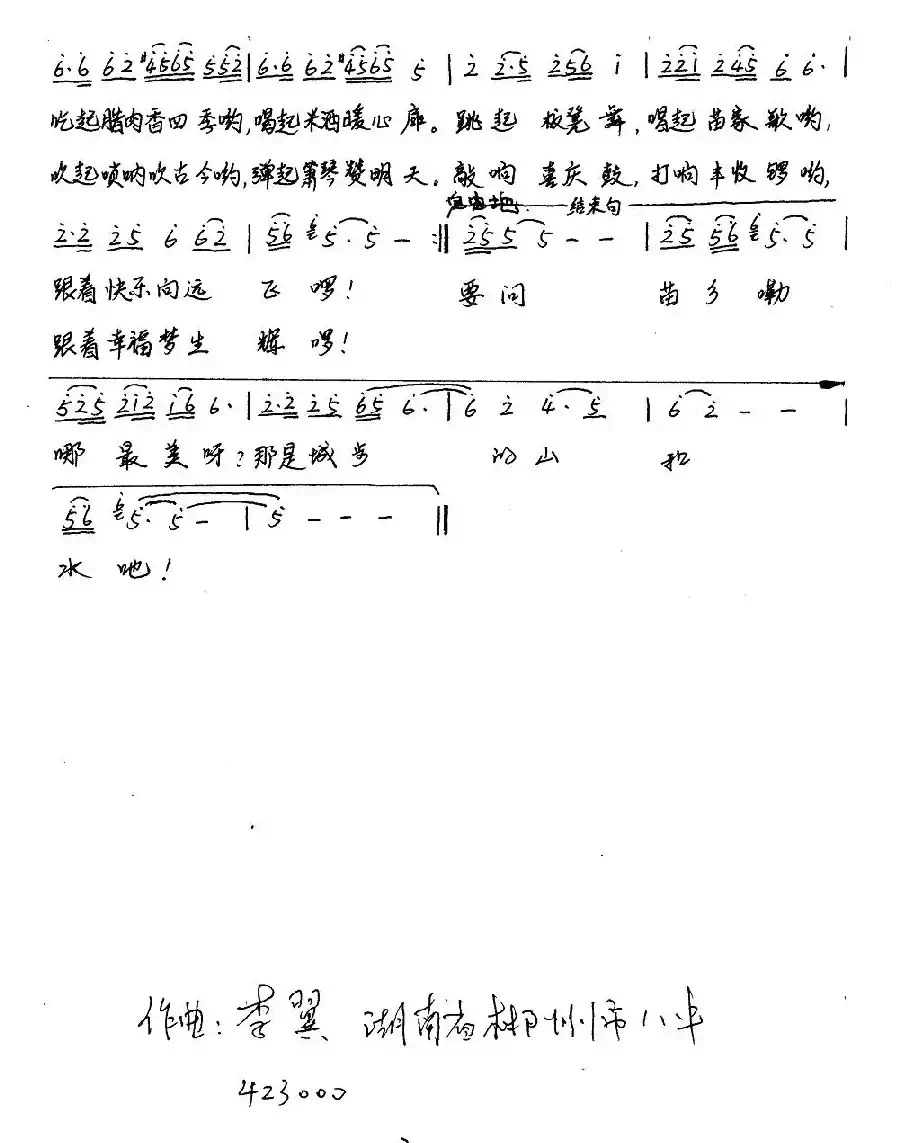 6·6 62 #4565 552 | 6·6 62 #4565 5 | 2 2·5 256 1 | 221 245 6 6· |
吃起腊肉香四季哟,喝起米酒暖心廊。跳起板凳舞,唱起苗家歌哟,
吹起唢呐吹古今哟,弹起箫琴赞明天。敲响喜庆鼓,打响丰收锣哟,
自由地 结束句
2·2 25 6 62 | 56 5·5 - :‖ 255 5 - - | 25 56 5·5 |
跟着快乐向远飞啰! 要问苗乡嘞
跟着幸福梦生辉啰!
525 212 16 6· | 2·2 25 65 6· | 6 2 4·5 | 6 2 - - |
哪最美呀?那是城步的山和
56 5·5 - | 5 - - - ‖
水吔!
作曲:李翼 湖南省郴州市八中
423000